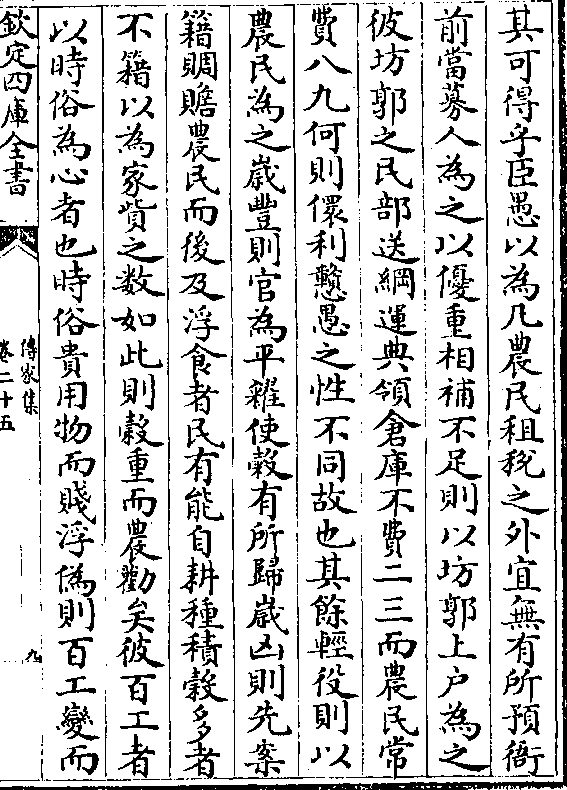 其可得乎臣愚以為凡農民租稅之外宜無有所預衙
前當募人為之以優重相補不足則以坊郭上户為之
彼坊郭之民部送綱運典領倉庫不費二三而農民常
費八九何則儇利戇愚之性不同故也其餘輕役則以
農民為之歲豐則官為平糴使榖有所歸歲凶則先案
籍賙贍農民而後及浮食者民有能自耕種積榖多者
不籍以為家貲之数如此則榖重而農勸矣彼百工者
以時俗為心者也時俗貴用物而賤浮偽則百工變而
欽定四庫全書
傳家集
卷二十五
九